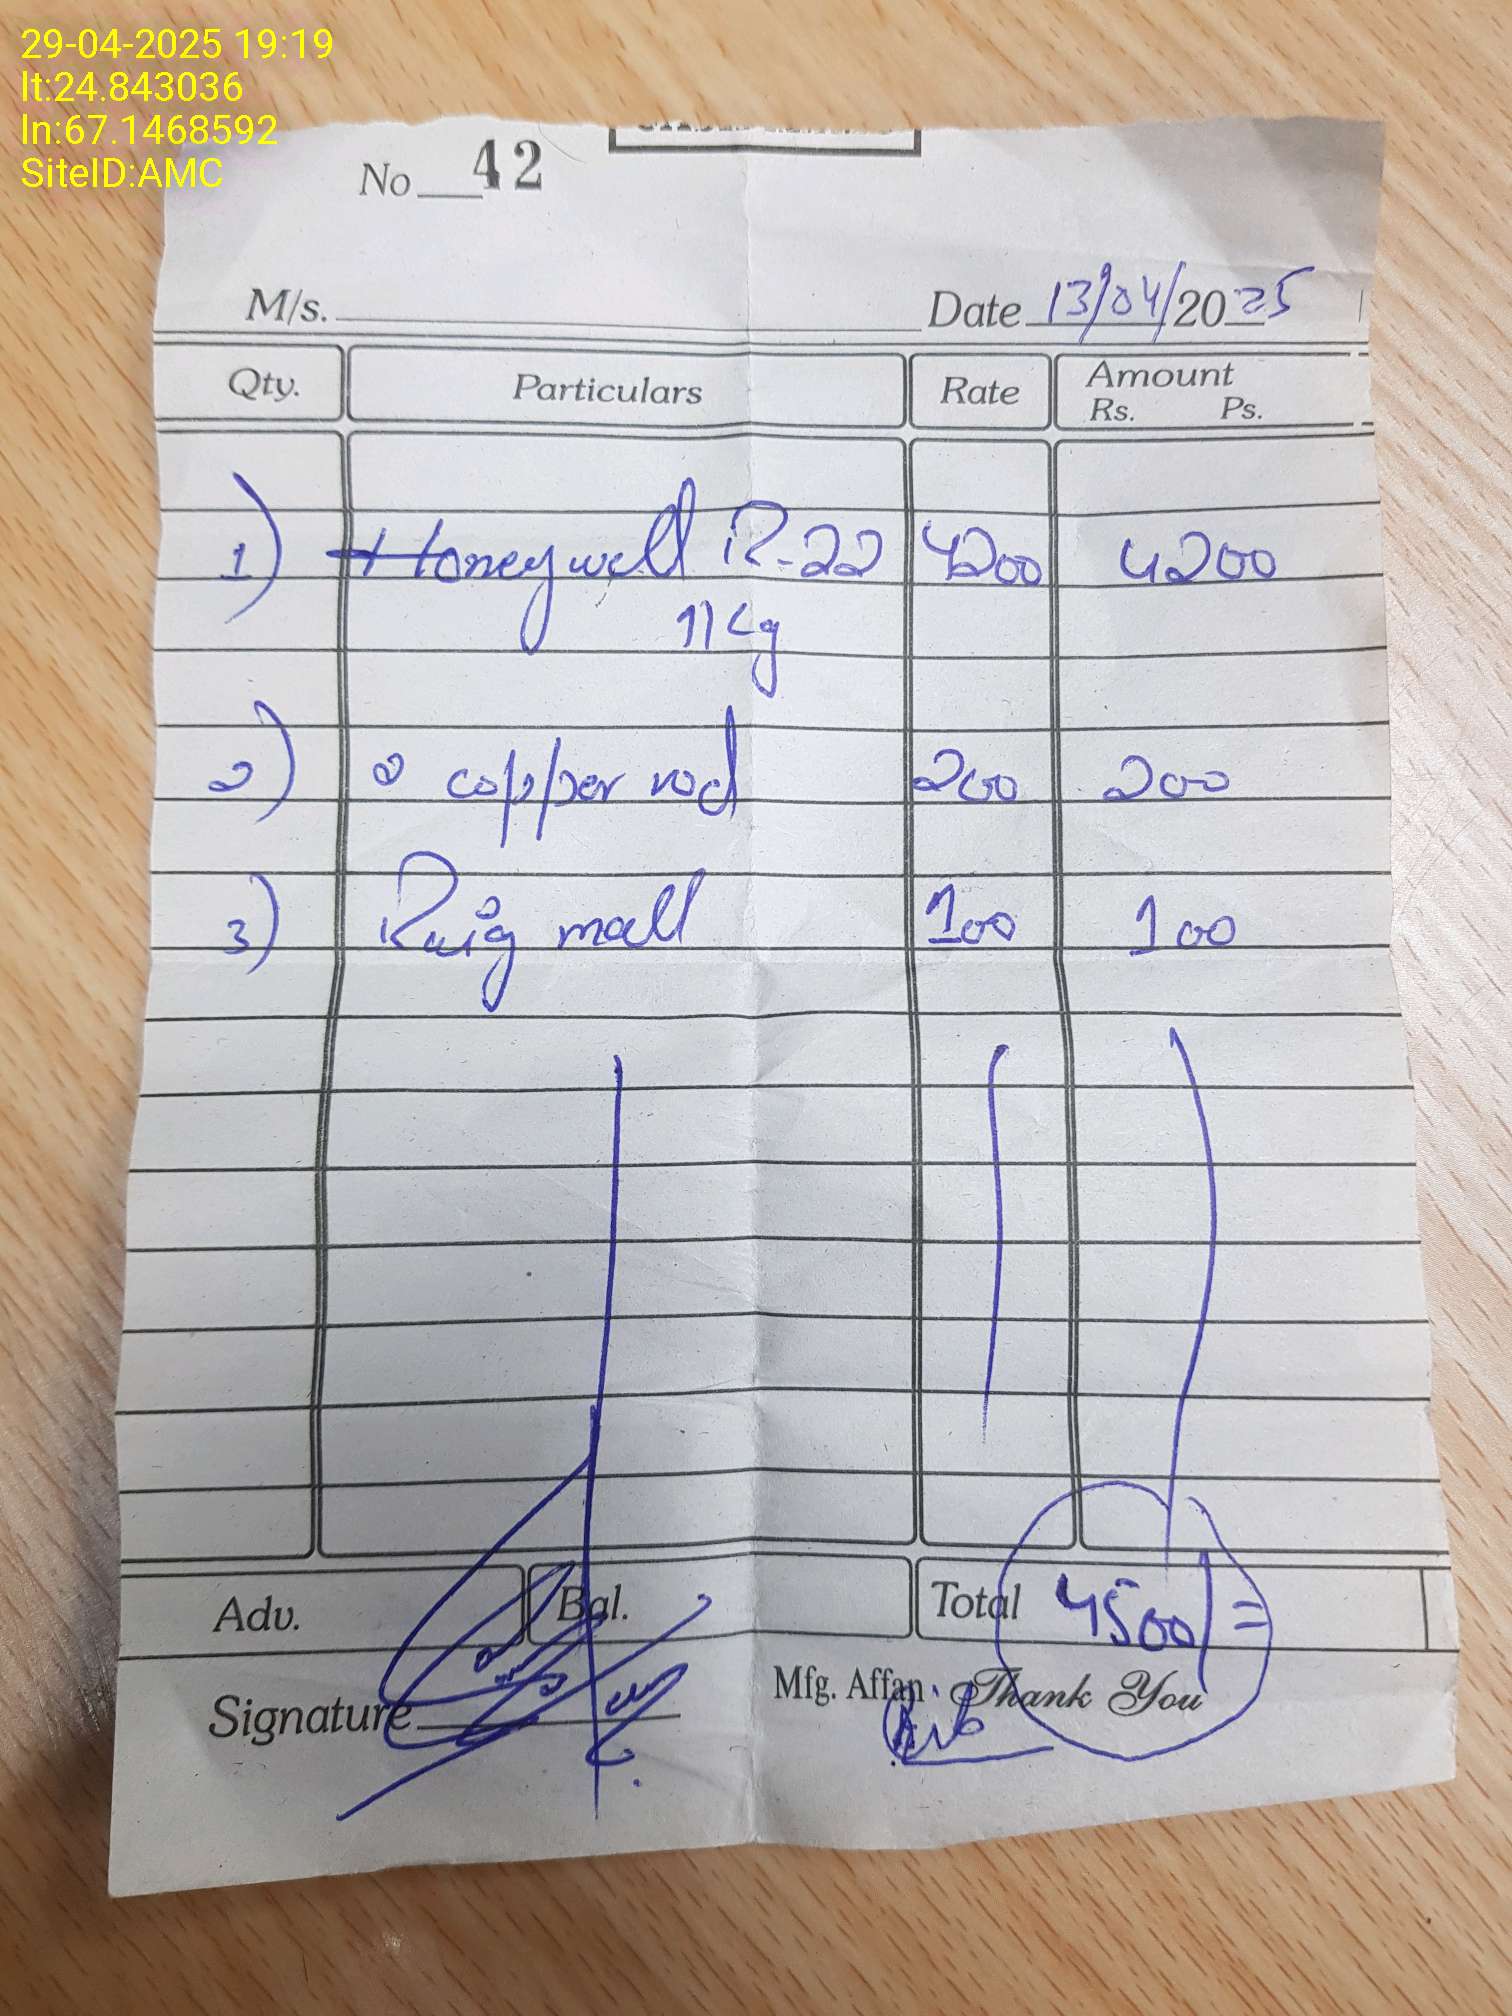 29-04-2025 19:19
lt:24.843036
ln:67.1468592
SiteID:AMC
No 42
M/s. Date 13/04/2025
Qty. Particulars Rate Amount
Rs. Ps.
1) Honeywell R-22 4200 4200
1Kg
2) copper rod 200 200
3) mall 100 100
Adv. Bal. Total 4500/=
Signature Mfg. Affan Thank You